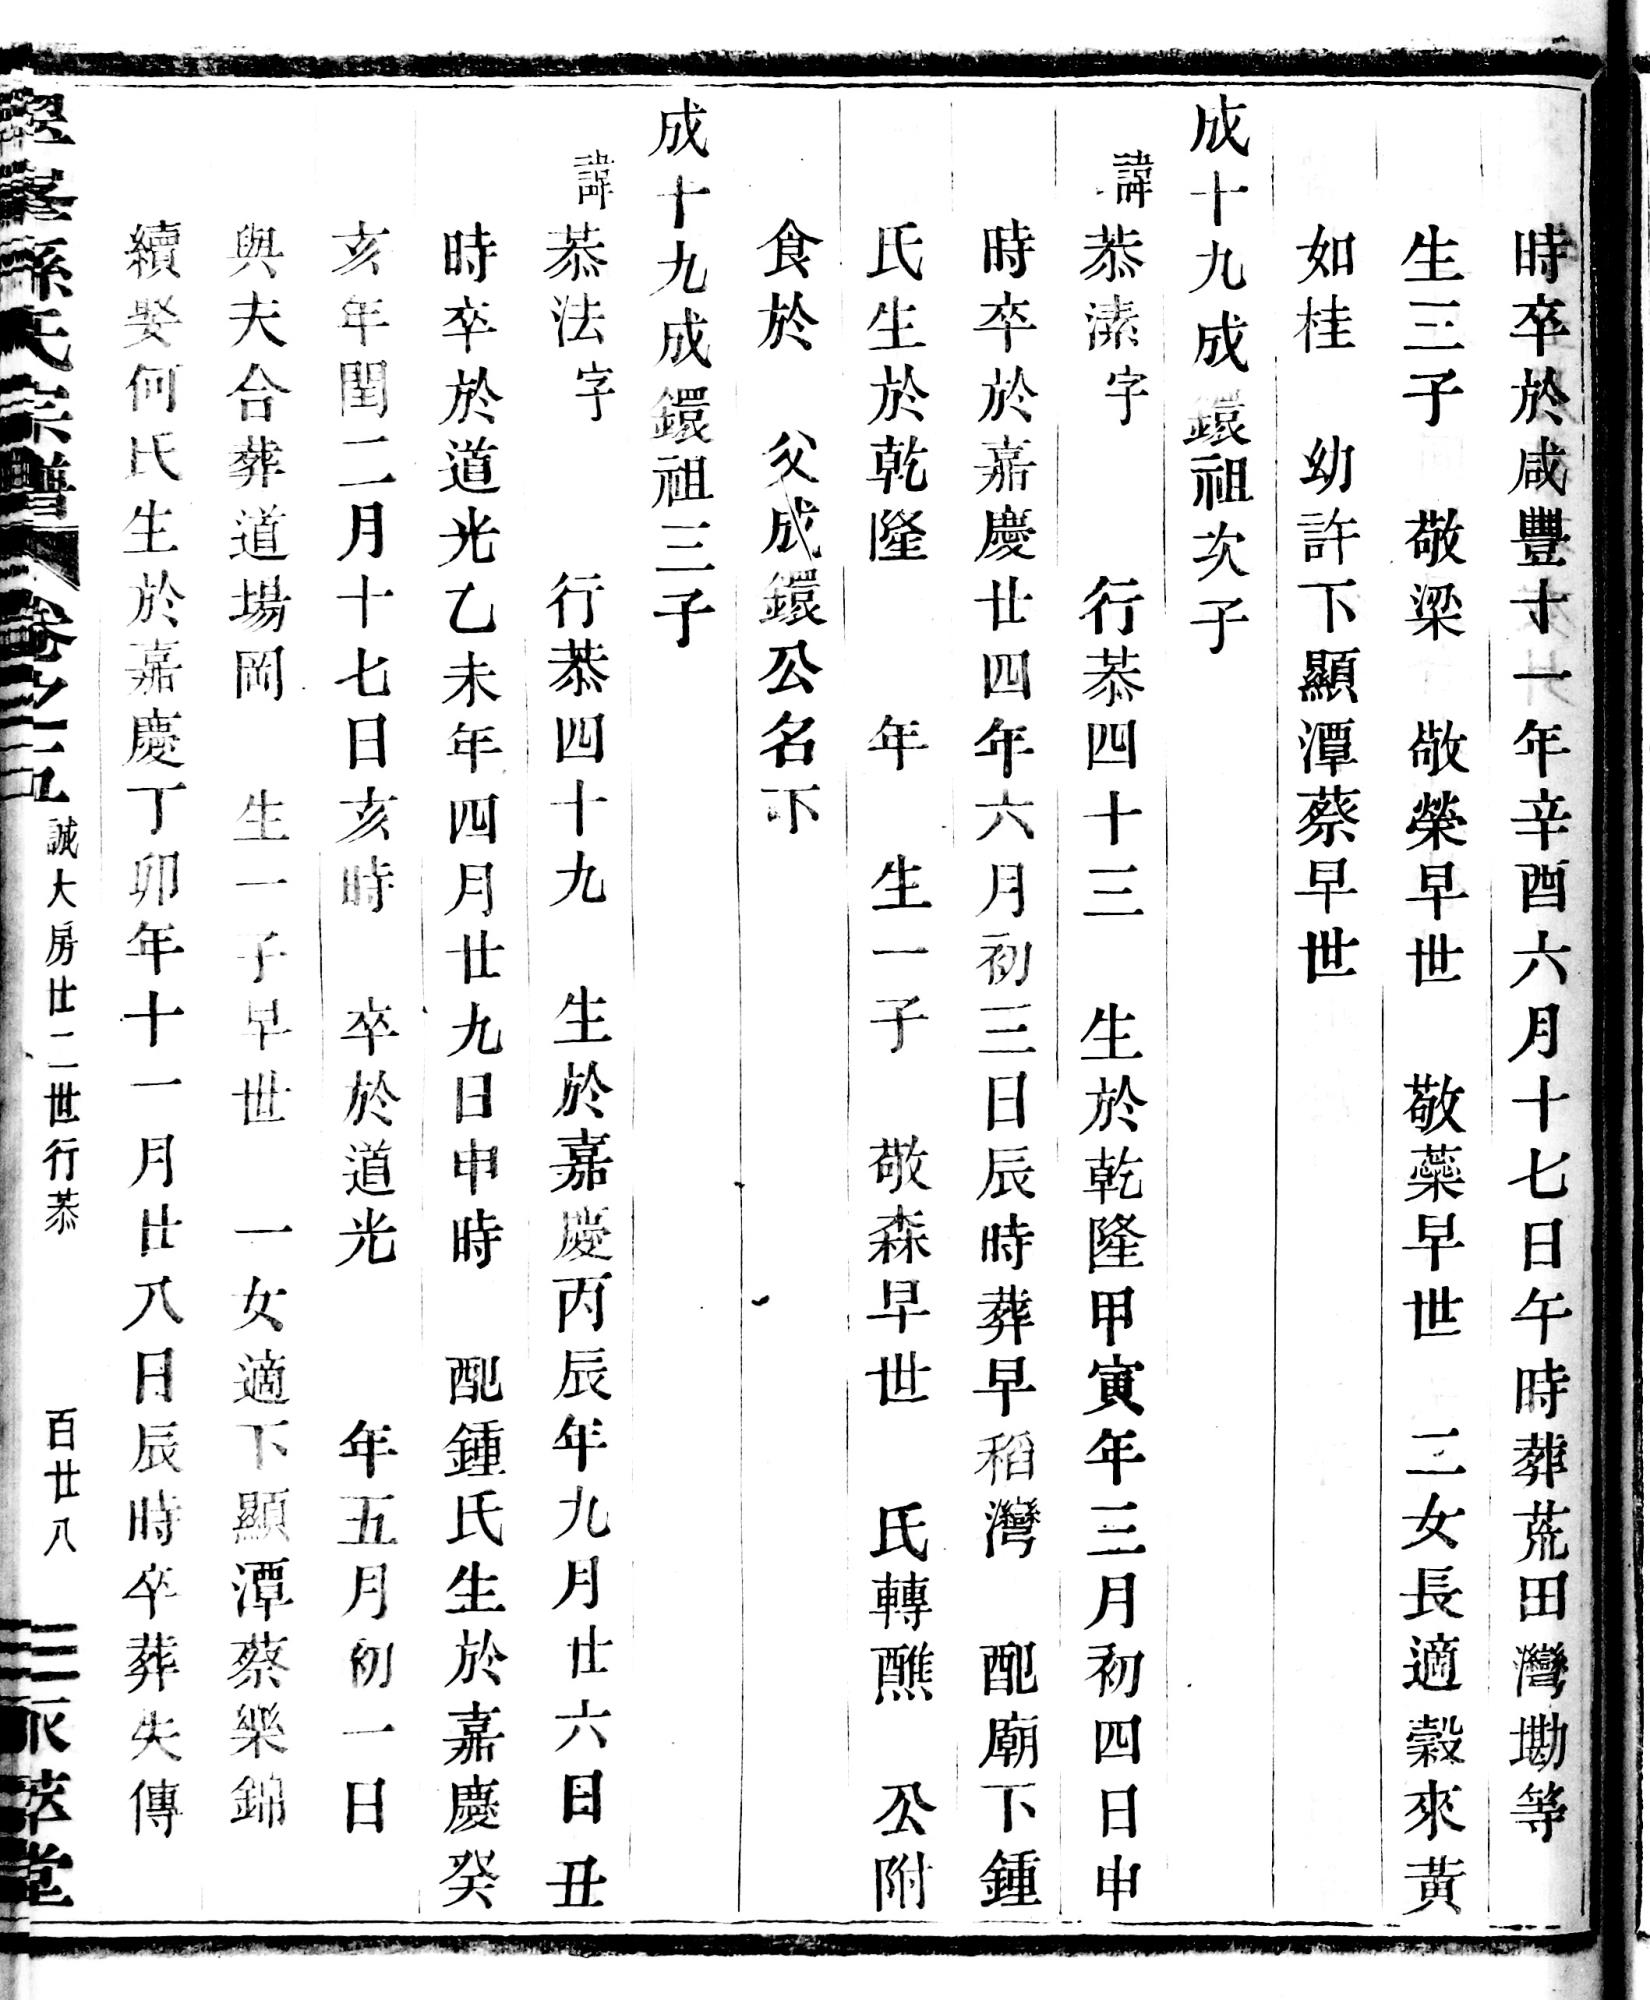 時卒於咸豐十一年辛酉六月十七日午時葬荒田灣墈等
生三子　敬梁　敬榮早世　敬藥早世　二女長適穀來黃
如桂　幼許下顯潭蔡早世
成十九成鐶祖次子
諱恭溸字　　行恭四十三　生於乾隆甲寅年三月初四日申
時卒於嘉慶廿四年六月初三日辰時葬早稻灣　配廟下鍾
氏生於乾隆　　年　生一子　敬森早世　氏轉醮　公附
食於　父成鐶公名下
成十九成鐶祖三子
諱恭法字　　行恭四十九　生於嘉慶丙辰年九月廿六日丑
時卒於道光乙未年四月廿九日申時　配鍾氏生於嘉慶癸
亥年閏二月十七日亥時　卒於道光　　年五月初一日
與夫合葬道場岡　生一子早世　一女適下顯潭蔡樂錦
續娶何氏生於嘉慶丁卯年十一月廿八日辰時卒葬失傳
孫氏宗譜　卷之十五　誠大房廿二世行恭　百廿八　萃堂